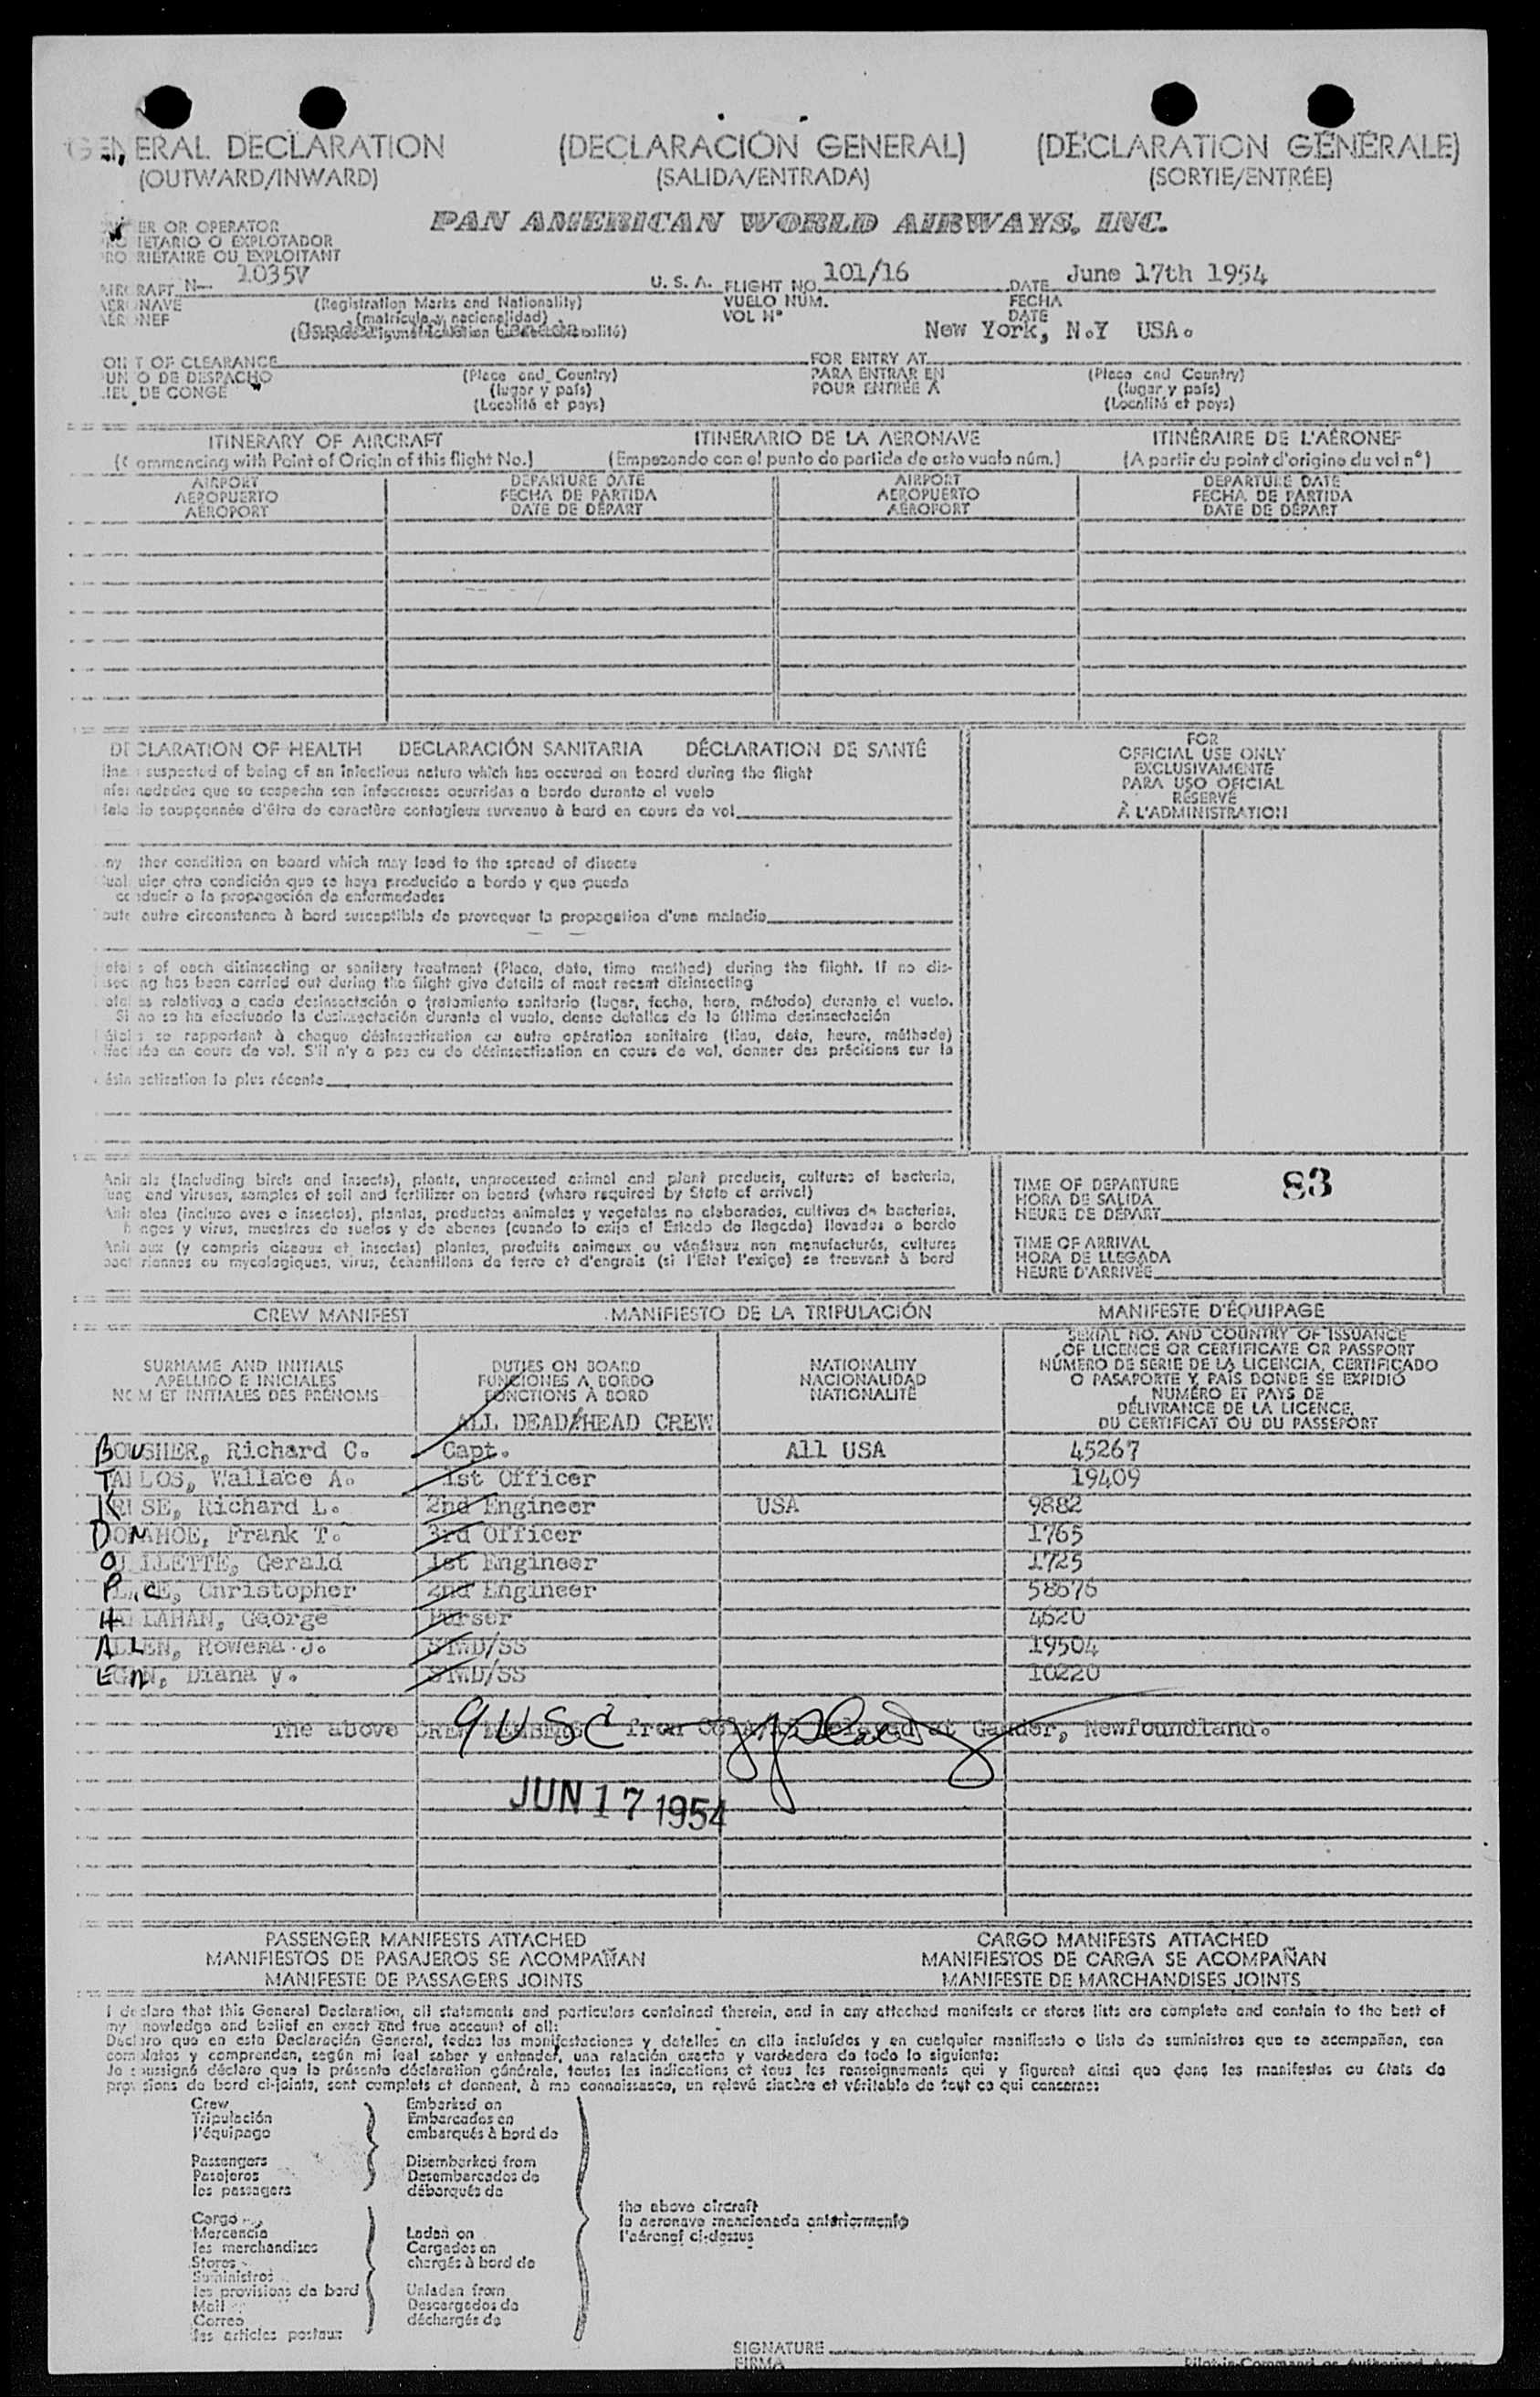 GENERAL DECLARATION (DECLARACIÓN GENERAL) (DÉCLARATION GÉNÉRALE)
(OUTWARD/INWARD) (SALIDA/ENTRADA) (SORTIE/ENTRÉE)
ER OR OPERATOR PAN AMERICAN WORLD AIRWAYS, INC.
IETARIO O EXPLOTADOR
RIETAIRE OU EXPLOITANT
RAFT N- 1035V U. S. A. FLIGHT NO. 101/16 DATE June 17th 1954
NAVE (Registration Marks and Nationality) VUELO NÚM. FECHA
NEF (matrícula y nacionalidad) VOL Nº DATE
Canada New York, N.Y USA.
T OF CLEARANCE FOR ENTRY AT
O DE DESPACHO (Place and Country) PARA ENTRAR EN (Place and Country)
DE CONGÉ (lugar y país) POUR ENTRÉE À (lugar y país)
(Localité et pays) (Localité et pays)
ITINERARY OF AIRCRAFT ITINERARIO DE LA AERONAVE ITINÉRAIRE DE L'AÉRONEF
(Commencing with Point of Origin of this flight No.) (Empezando con el punto de partida de este vuelo núm.) (A partir du point d'origine du vol nº)
AIRPORT DEPARTURE DATE AIRPORT DEPARTURE DATE
AEROPUERTO FECHA DE PARTIDA AEROPUERTO FECHA DE PARTIDA
AÉROPORT DATE DE DÉPART AÉROPORT DATE DE DÉPART
DECLARATION OF HEALTH DECLARACIÓN SANITARIA DÉCLARATION DE SANTÉ
suspected of being of an infectious nature which has occured on board during the flight
que se sospecha son infecciosas ocurridas a bordo durante el vuelo
soupçonnée d'être de caractère contagieux survenue à bord en cours de vol
ther condition on board which may lead to the spread of disease
uier otra condición que se haya producido a bordo y que pueda
conducir a la propagación de enfermedades
autre circonstance à bord susceptible de provoquer la propagation d'une maladie
of each disinsecting or sanitary treatment (Place, date, time method) during the flight. If no dis-
ng has been carried out during the flight give details of most recent disinsecting
es relativos a cada desinsectación o tratamiento sanitario (lugar, fecha, hora, método) durante el vuelo.
Si no se ha efectuado la desinsectación durante el vuelo, dense detalles de la última desinsectación
se rapportant à chaque désinsectisation ou autre opération sanitaire (lieu, date, heure, méthode)
en cours de vol. S'il n'y a pas eu de désinsectisation en cours de vol, donner des précisions sur la
la plus récente
FOR
OFFICIAL USE ONLY
EXCLUSIVAMENTE
PARA USO OFICIAL
RÉSERVÉ
À L'ADMINISTRATION
Animals (Including birds and insects), plants, unprocessed animal and plant products, cultures of bacteria,
and viruses, samples of soil and fertilizer on board (where required by State of arrival)
Animales (incluso aves o insectos), plantas, productos animales y vegetales no elaborados, cultivos de bacterias,
hongos y virus, muestras de suelos y de abonos (cuando lo exija el Estado de llegada) llevados a bordo
Animaux (y compris oiseaux et insectes) plantes, produits animaux ou végétaux non manufacturés, cultures
ou mycologiques, virus, échantillons de terre et d'engrais (si l'Etat l'exige) se trouvant à bord
TIME OF DEPARTURE 83
HORA DE SALIDA
HEURE DE DÉPART
TIME OF ARRIVAL
HORA DE LLEGADA
HEURE D'ARRIVÉE
CREW MANIFEST MANIFIESTO DE LA TRIPULACIÓN MANIFESTE D'ÉQUIPAGE
SURNAME AND INITIALS
APELLIDO E INICIALES
NOM ET INITIALES DES PRÉNOMS
DUTIES ON BOARD
FUNCIONES A BORDO
FONCTIONS À BORD
ALL DEAD/HEAD CREW
NATIONALITY
NACIONALIDAD
NATIONALITÉ
SERIAL NO. AND COUNTRY OF ISSUANCE
OF LICENCE OR CERTIFICATE OR PASSPORT
NÚMERO DE SERIE DE LA LICENCIA, CERTIFICADO
O PASAPORTE Y PAÍS DONDE SE EXPIDIÓ
NUMÉRO ET PAYS DE
DÉLIVRANCE DE LA LICENCE,
DU CERTIFICAT OU DU PASSEPORT
BOUSHER, Richard C. Capt. All USA 45267
TALLOS, Wallace A. 1st Officer 19409
Richard L. 2nd Engineer USA 9882
DONAHOE, Frank T. 3rd Officer 1765
OUILLETTE, Gerald 1st Engineer 1725
Christopher 2nd Engineer 58676
HALLAHAN, George Purser 4620
ALLEN, Rowena J. STWD/SS 19504
EGAN, Diana y. STWD/SS 10220
The above CREW MEMBERS from delayed at Gander, Newfoundland.
9 USC
JUN 17 1954
PASSENGER MANIFESTS ATTACHED CARGO MANIFESTS ATTACHED
MANIFIESTOS DE PASAJEROS SE ACOMPAÑAN MANIFIESTOS DE CARGA SE ACOMPAÑAN
MANIFESTE DE PASSAGERS JOINTS MANIFESTE DE MARCHANDISES JOINTS
I declare that this General Declaration, all statements and particulars contained therein, and in any attached manifests or stores lists are complete and contain to the best of
my knowledge and belief an exact and true account of all:
Declaro que en esta Declaración General, todas las manifestaciones y detalles en ella incluídos y en cualquier manifiesto o lista de suministros que se acompañan, son
completos y comprenden, según mi leal saber y entender, una relación exacta y verdadera de todo lo siguiente:
Je soussigné déclare que la présente déclaration générale, toutes les indications et tous les renseignements qui y figurent ainsi que dans les manifestes ou états de
provisions de bord ci-joints, sont complets et donnent, à ma connaissance, un relevé sincère et véritable de tout ce qui concerne:
Crew Embarked on
Tripulación Embarcados en
l'équipage embarqués à bord de
Passengers Disembarked from
Pasajeros Desembarcados de
les passagers débarqués de
the above aircraft
la aeronave mencionada anteriormente
l'aéronef ci-dessus
Cargo
Mercancía Laden on
les marchandises Cargados en
Stores chargés à bord de
Suministros
les provisions de bord Unladen from
Mail Descargados de
Correo déchargés de
les articles postaux
SIGNATURE
FIRMA
Pilot-in-Command or Authorized Agent